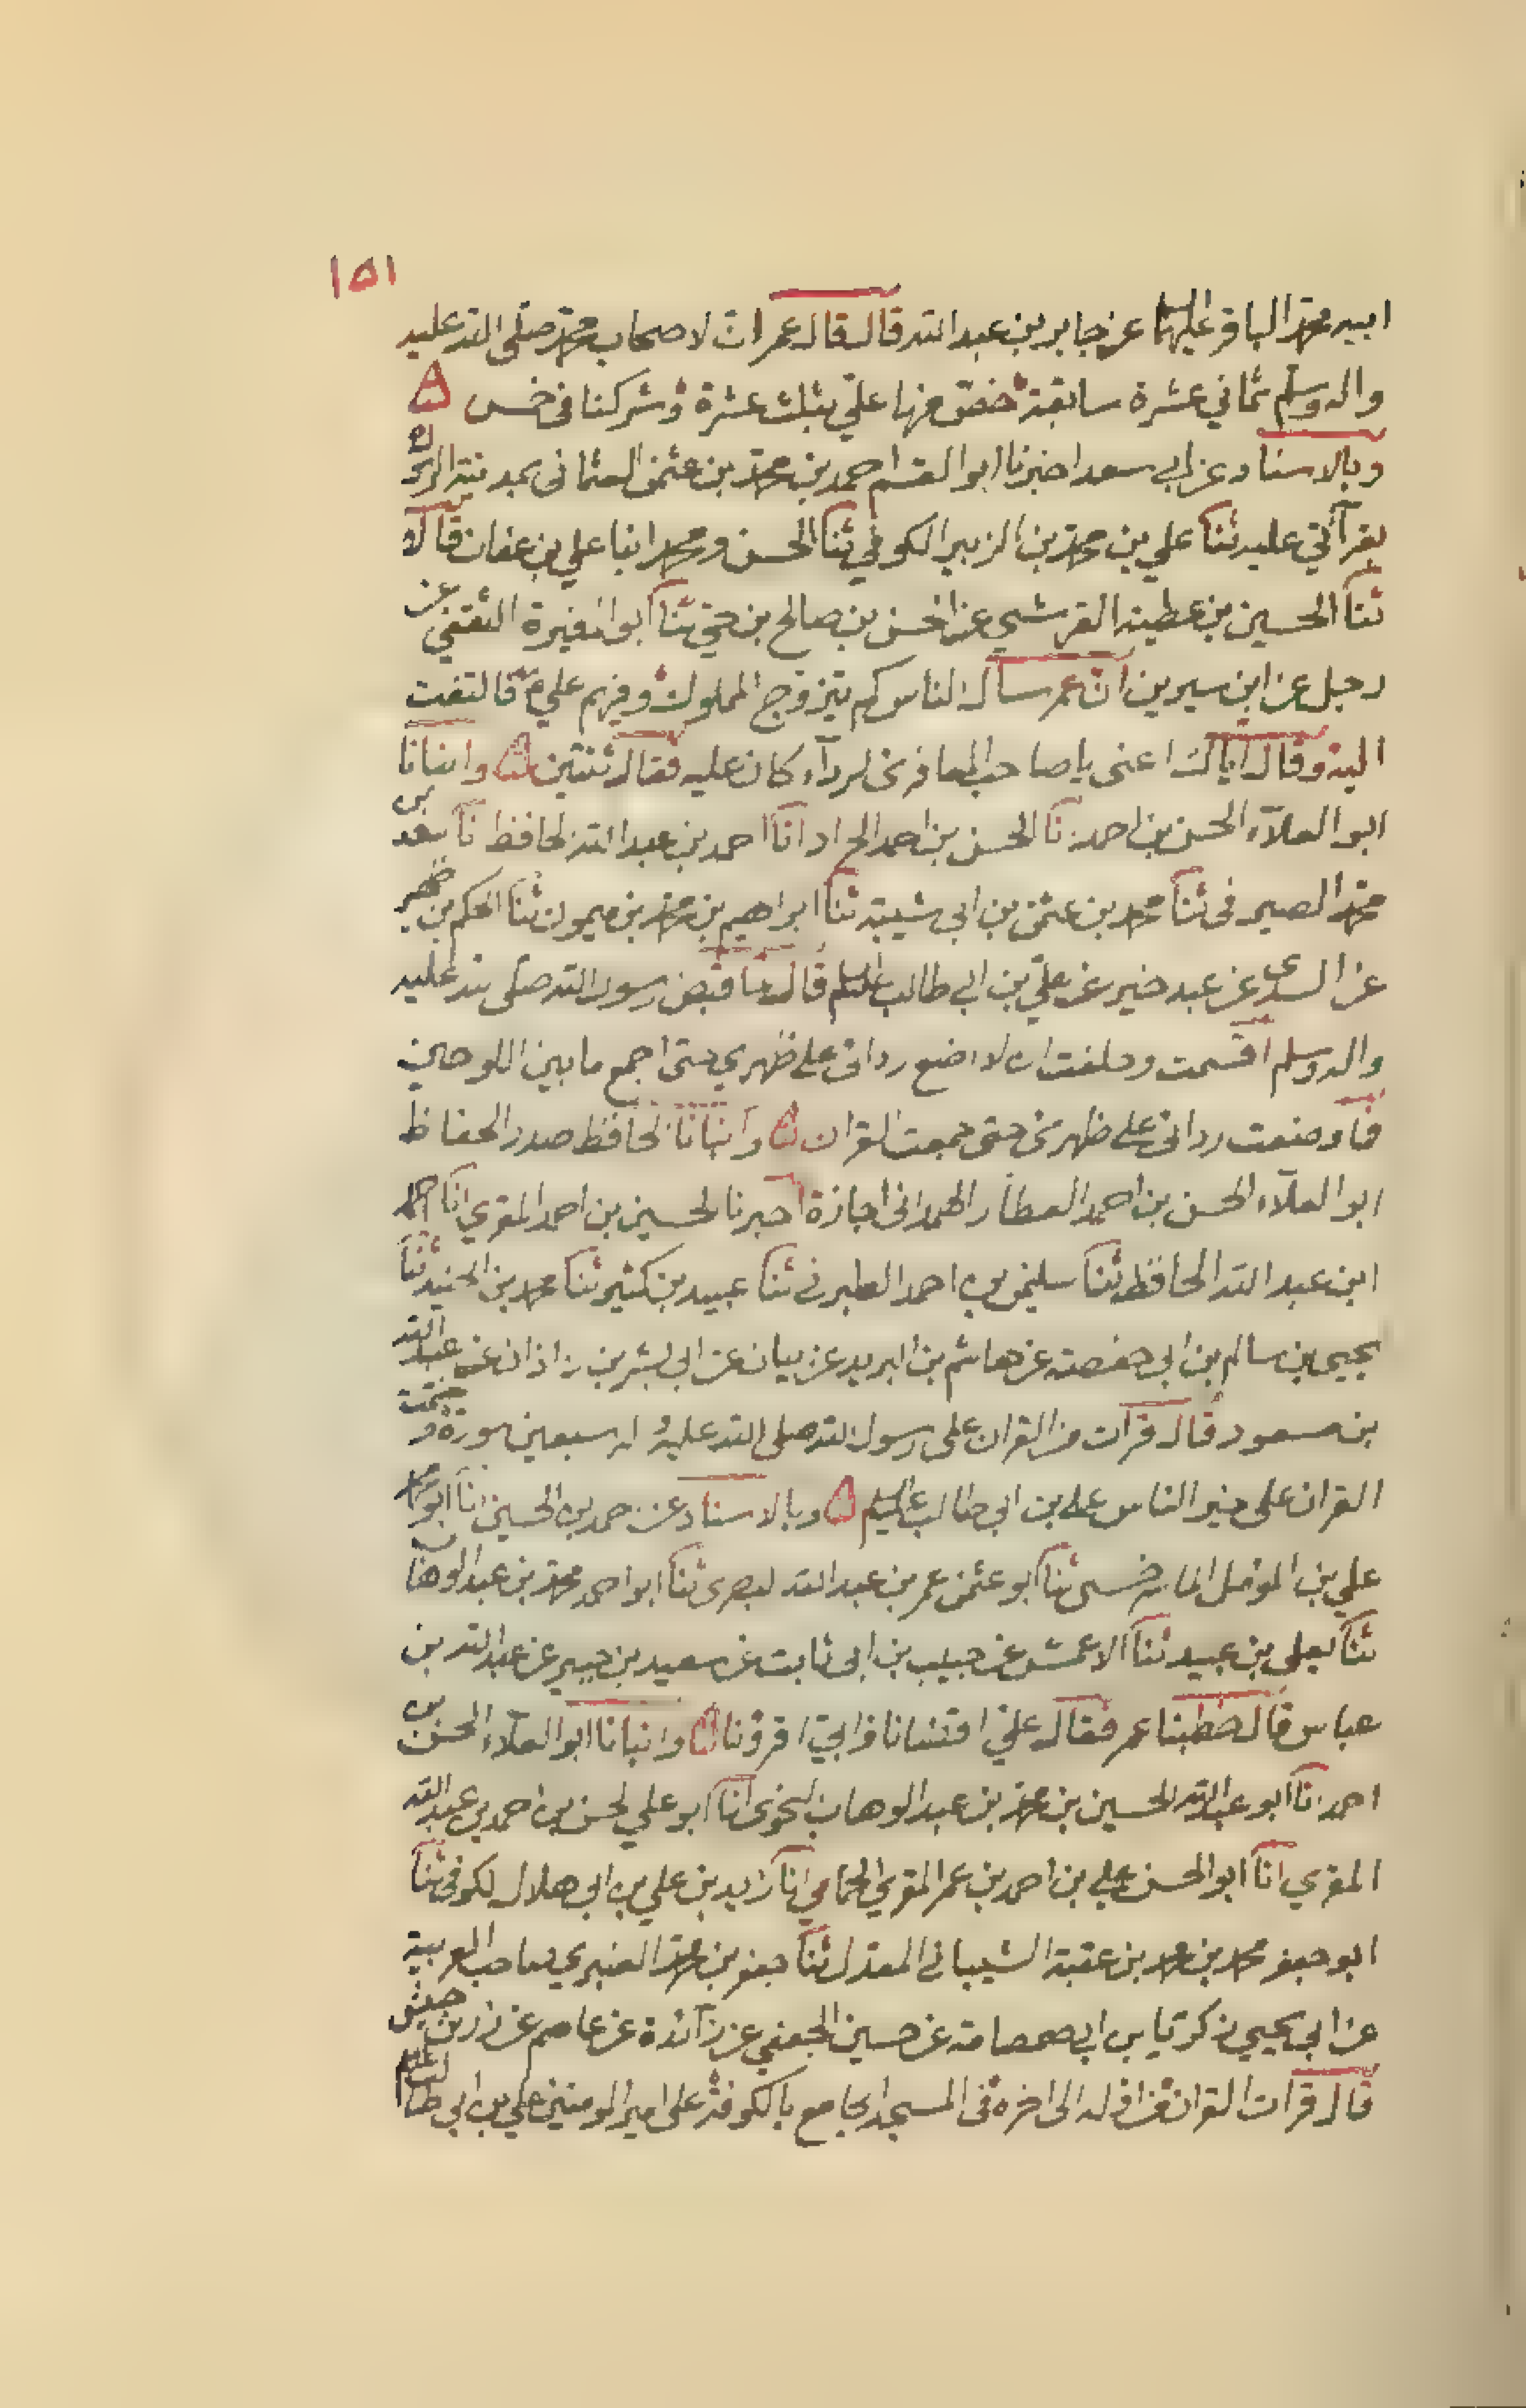 ١٥١
ابيه محمد الباقر عليهما السلام عن جابر بن عبد الله قال قال عمر ان لاصحاب محمد صلى الله عليه
واله وسلم ثماني عشرة سابقة خص منها علي بثلث عشرة وشركنا في خمس ۵
وبالاسناد عن ابي سعد اخبرنا ابو القسم احمد بن محمد بن عثمن العثماني بمدينة الري
بقرآتي عليه ثنا علي بن محمد بن الزبير الكوفي ثنا الحسن ومحمد ابنا علي بن عفان قالا
ثنا الحسين بن عطية القرشي عن الحسن بن صالح بن حي ثنا ابو المغيرة الثقفي عن
رجل عن ابن سيرين ان عمر سال الناس كم يتزوج المملوك وفيهم علي فالتفت
اليه وقال اياك اعني يا صاحب المعافري لرداء كان عليه فقال ثنتين ۵ وانبانا
ابو العلاء الحسن بن احمد انا الحسن بن احمد الحداد انا احمد بن عبد الله الحافظ نا سعد بن
محمد الصيرفي ثنا محمد بن عثمن بن ابي شيبة ثنا ابراهيم بن محمد بن ميمون ثنا الحكم بن ظهير
عن السدي عن عبد خير عن علي بن ابي طالب عليه السلم قال لما قبض رسول الله صلى الله عليه
واله وسلم اقسمت وحلفت ان لا اضع ردائي على ظهري حتى اجمع ما بين اللوحين
فما وضعت ردائي على ظهري حتى جمعت القران ۵ وانبانا الحافظ صدر الحفاظ
ابو العلاء الحسن بن احمد العطار الهمداني اجازة اخبرنا الحسين بن احمد المقري انا احمد
ابن عبد الله الحافظ ثنا سليمن بن احمد الطبرني ثنا عبيد بن كثير ثنا محمد بن الجنيد ثنا
يحيى بن سالم بن ابي حفصة عن هاشم بن البريد عن بيان عن ابي بشر بن زاذان عن عبد الله
بن مسعود قال قرات من القران على رسول الله صلى الله عليه واله سبعين سورة وختمت
القران على خير الناس علي بن ابي طالب عليه السلم ۵ وبالاسناد عن احمد بن الحسين انا ابو محمد
علي بن المؤمل الماسرخسي ثنا ابو عثمن عمر بن عبد الله البصري ثنا ابو احمد محمد بن عبد الوهاب
ثنا يعلى بن عبيد ثنا الاعمش عن حبيب بن ابي ثابت عن سعيد بن جبير عن عبد الله بن
عباس قال خطبنا عمر فقال علي اقضانا وابي اقرؤنا ۵ وانبانا ابو العلاء الحسن بن
احمد انا ابو عبد الله الحسين بن محمد بن عبد الوهاب النحوي انا ابو علي الحسن بن احمد بن عبد الله
المقري انا ابو الحسن علي بن احمد بن عمر المقري الحمامي انا زيد بن علي بن ابي هلال الكوفي ثنا
ابو جعفر محمد بن محمد بن عقبة الشيباني المعدل ثنا جعفر بن محمد العنبري صاحب العربية
عن ابي يحيي زكريا بن ابي صمصامة عن حسين الجعفي عن زآئدة عن عاصم عن زر بن حبيش
قال قرات القران من اوله الى اخره في المسجد الجامع بالكوفة على امير المومنين علي بن ابي طالب عليه السلم